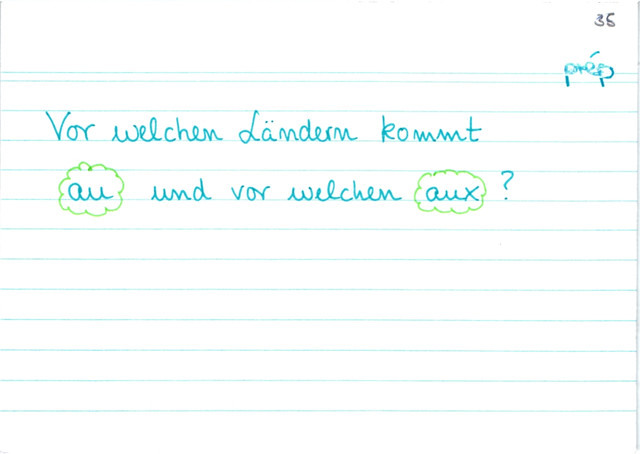 36
prép
Vor welchen Ländern kommt
au und vor welchen aux ?